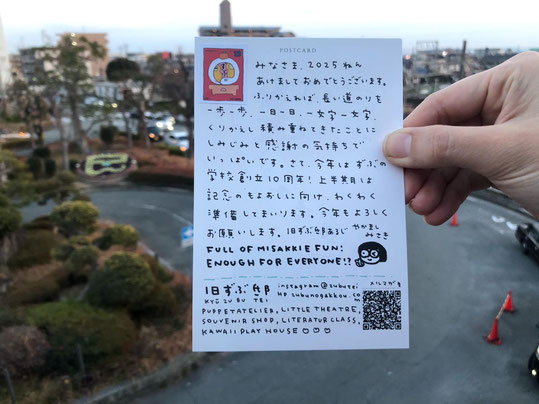 POSTCARD
みなさま、2025ねん
あけましておめでとうございます。
ふりかえれば、長い道のりを
一歩一歩、一日一日、一文字一文字、
くりかえし積み重ねてきたことに
しみじみと感謝の気持ちで
いっぱいです。さて、今年はずぶの
学校創立10周年!上半期は
記念のもよおしに向け、わくわく
準備してまいります。今年もよろしく
お願いします。旧ずぶ邸あるじ やかまし
みさき
FULL OF MISAKKIE FUN:
ENOUGH FOR EVERYONE!?
旧ずぶ邸
KYŪ ZU BU TEI
instagram@zubutei
HP zubunogakkou.com
メルマガ
PUPPETATELIER, LITTLE THEATRE,
SOUVENIR SHOP, LITERATUR CLASS,
KAWAII PLAY HOUSE